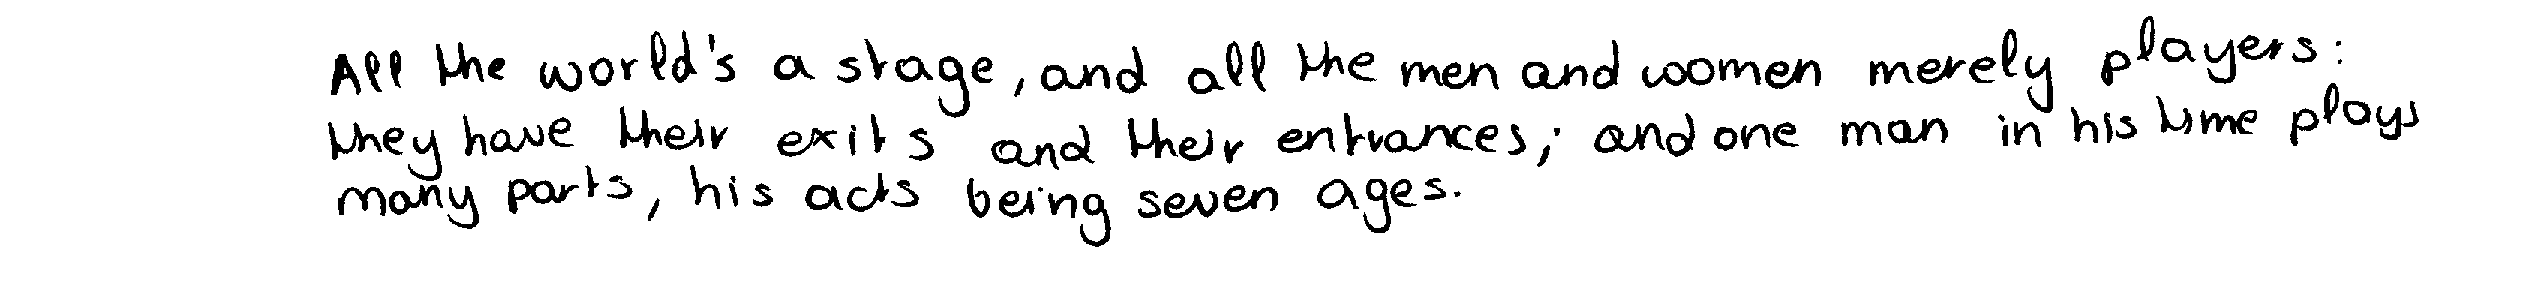 All the world's a stage, and all the men and women merely players:
they have their exits and their entrances; and one man in his time plays
many parts, his acts being seven ages.